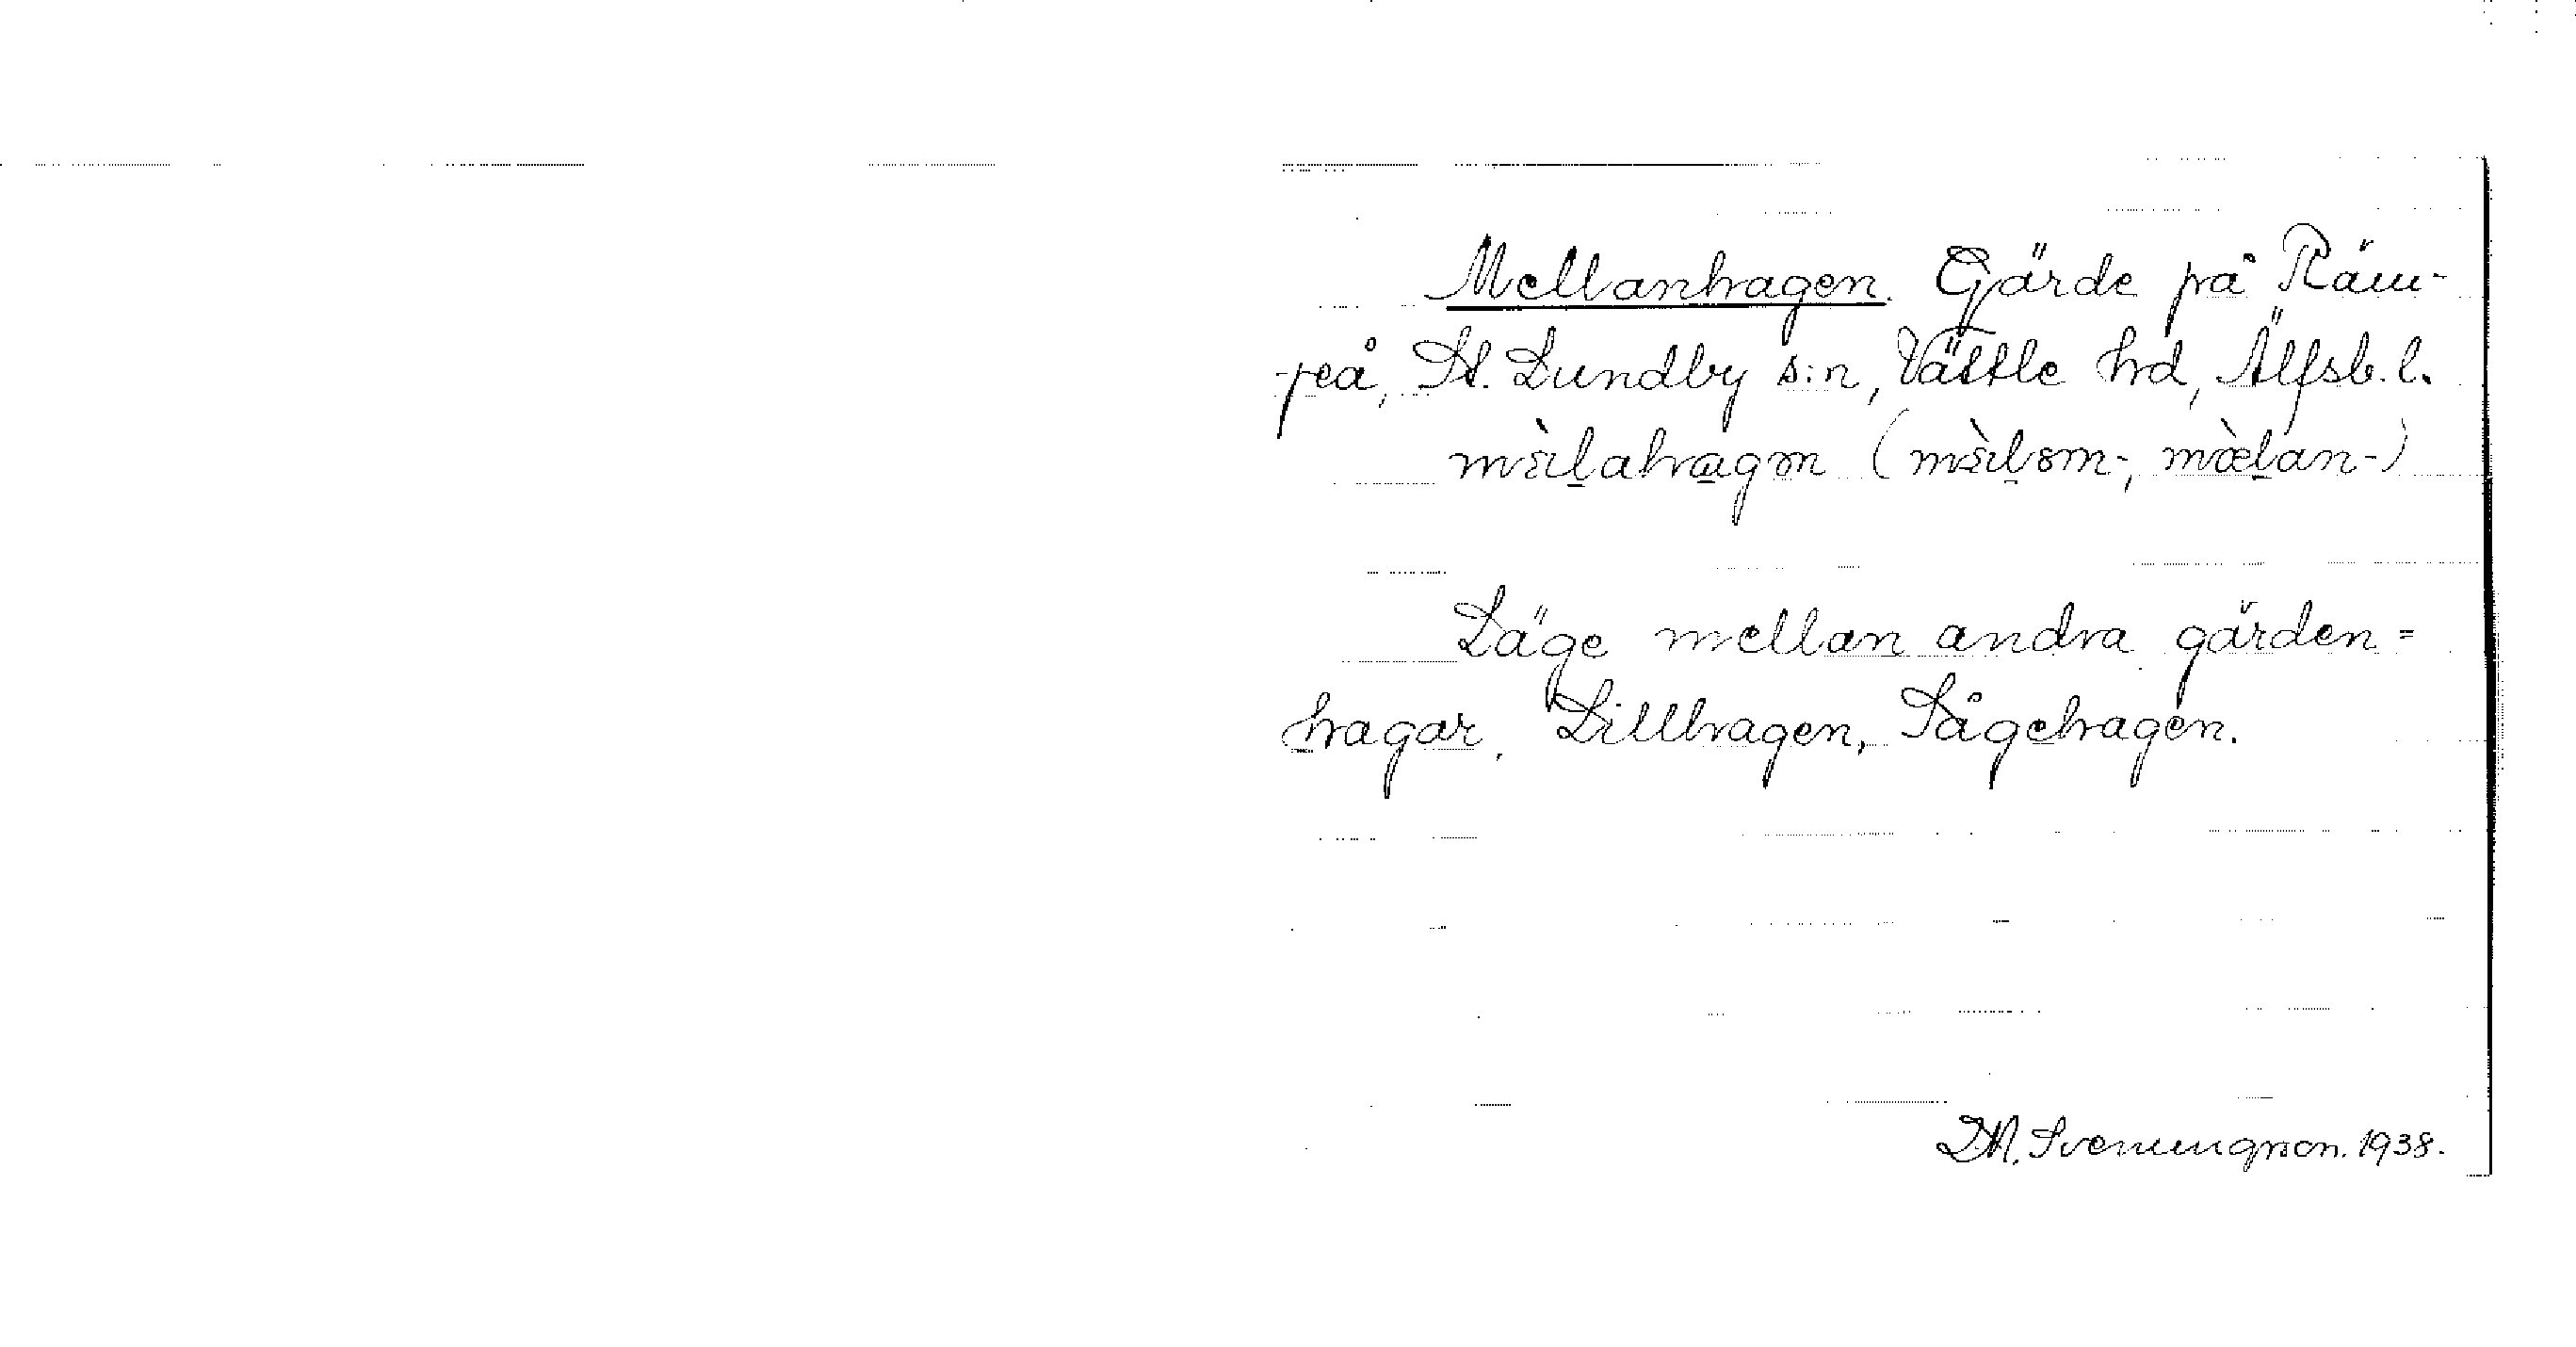 Mellanhagen. Gärde på Räm-
peå, St. Lundby s:n, Vättle hd, Älfsb. l.
mæ̀lahagən (mæ̀ləm-, mæ̀lan-)
Läge mellan andra gärden=
hagar, Lillhagen, Sågehagen.
D.M. Svenungson. 1938.